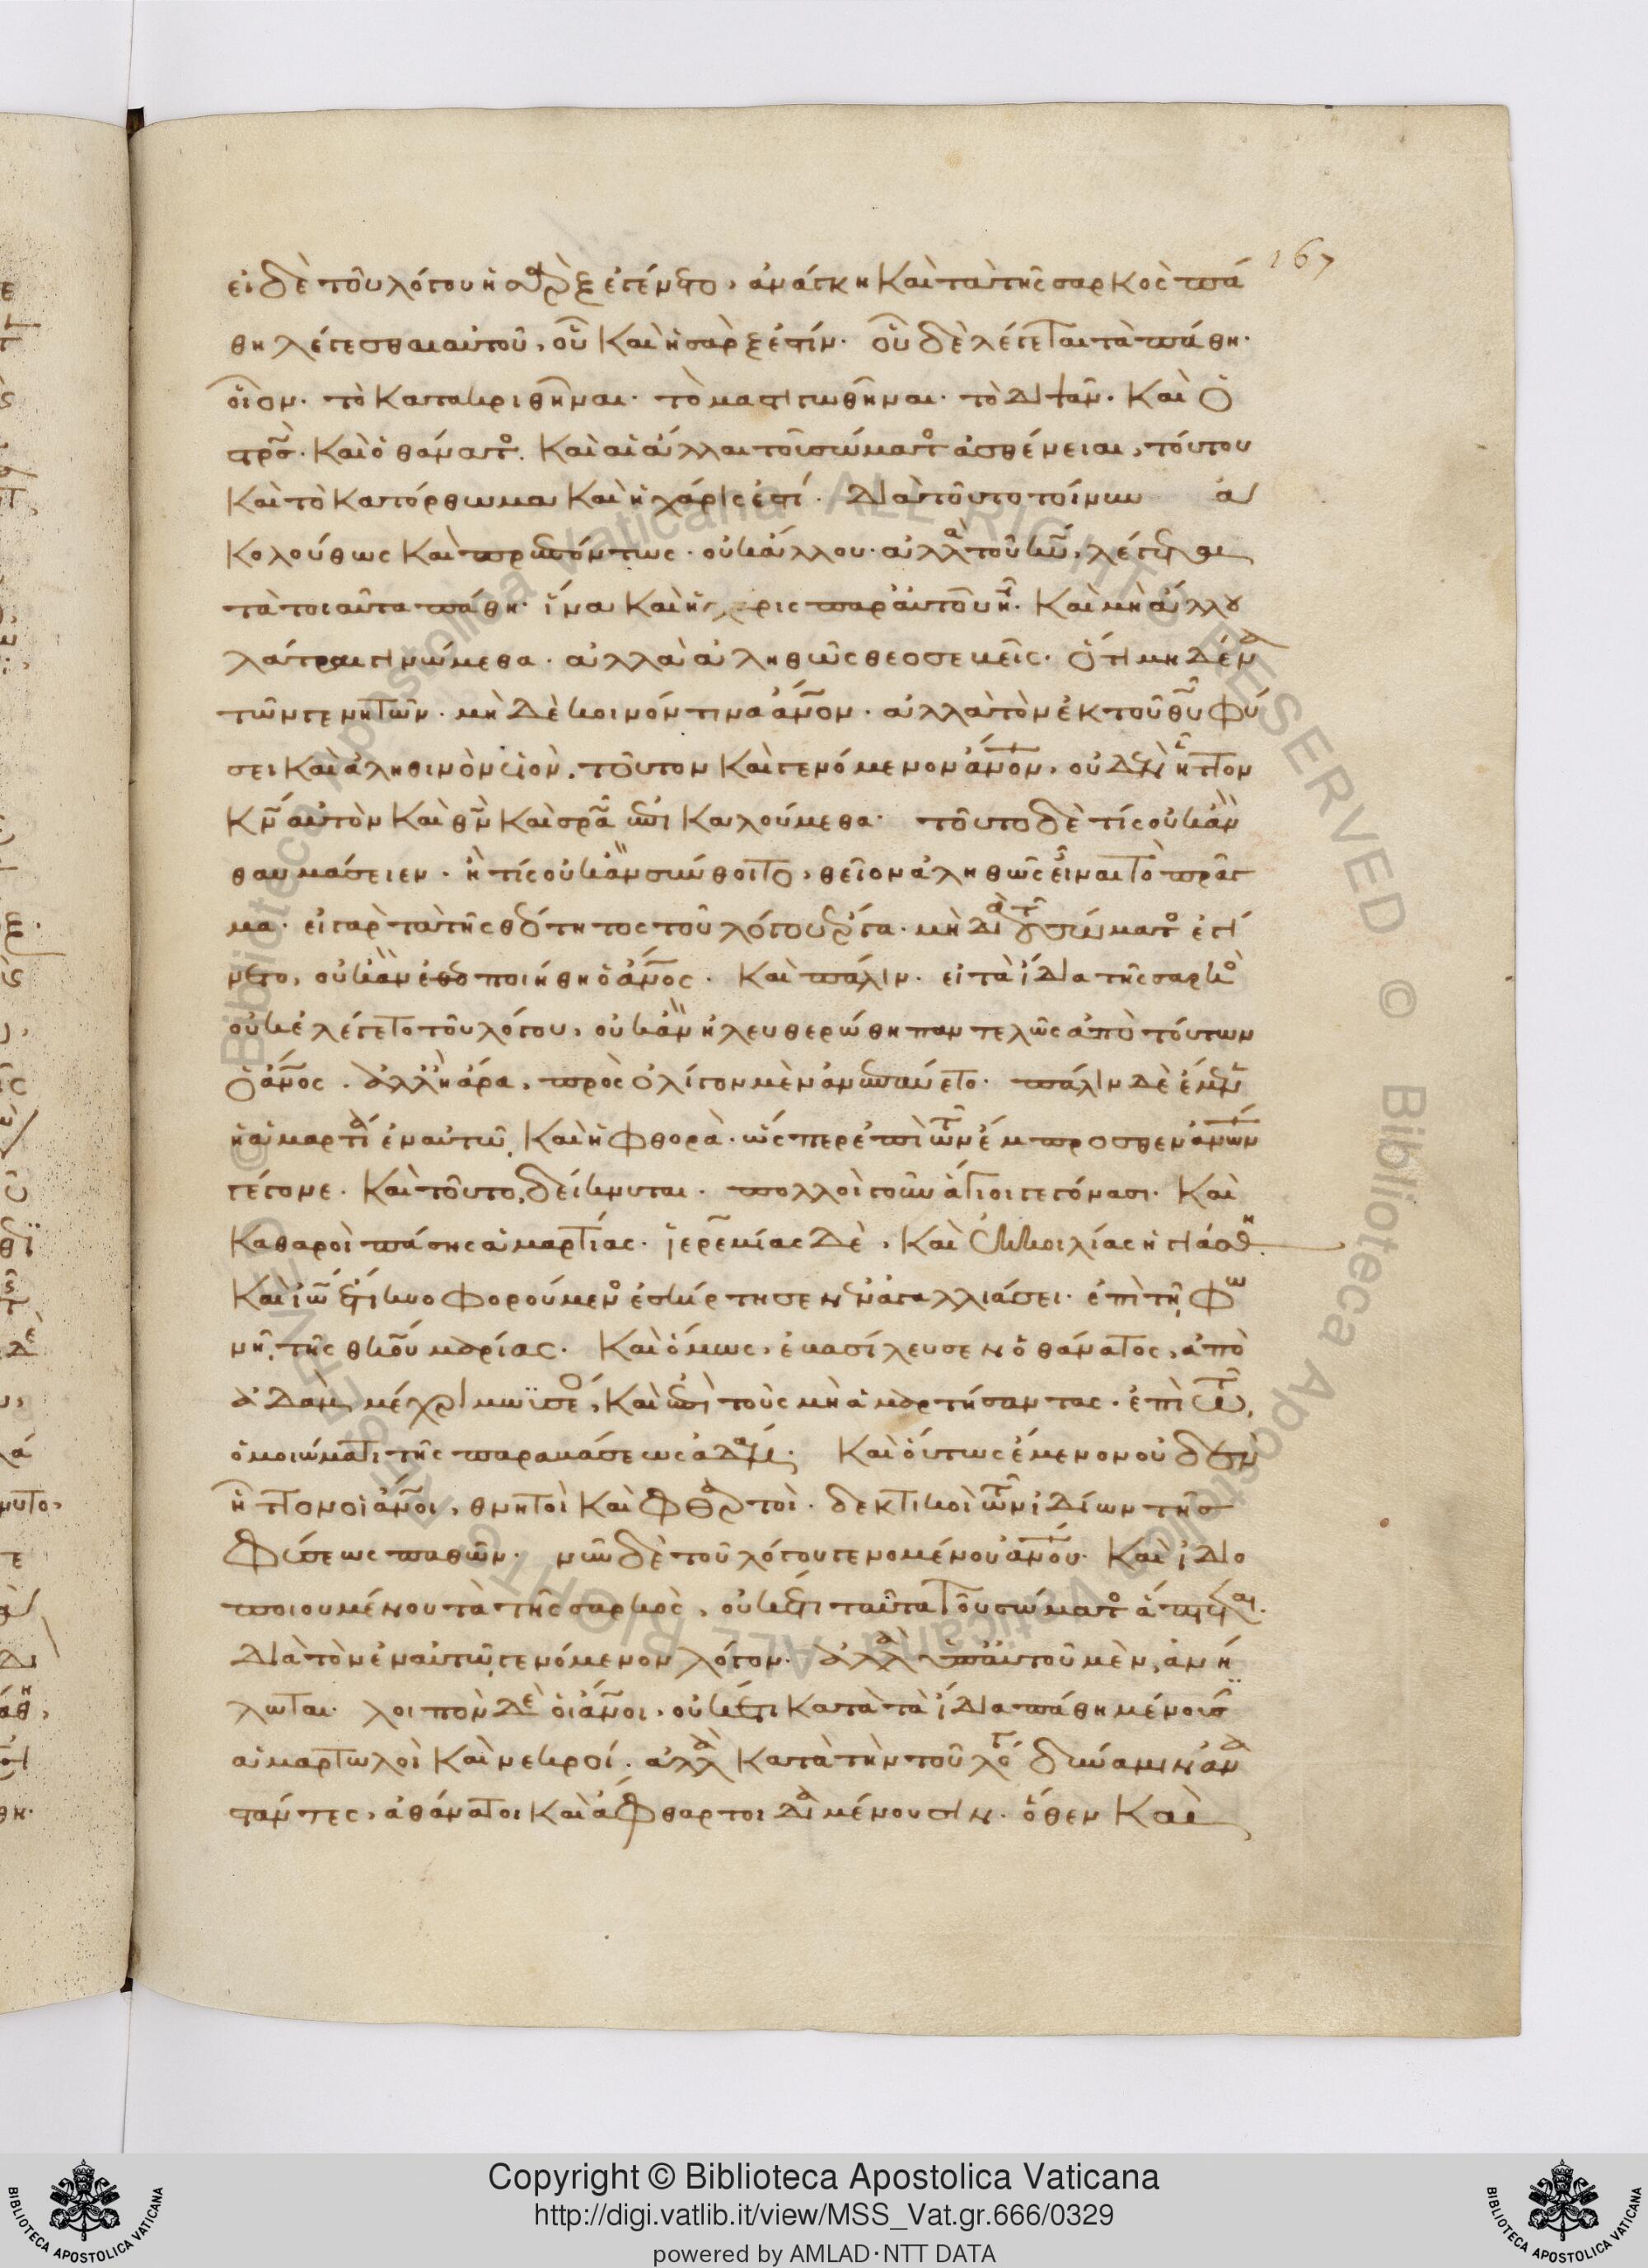 167
εἰ δὲ τοῦ λόγου ἡ σὰρξ ἐγένετο, ἀνάγκη καὶ τὰ τῆς σαρκὸς πά
θη λέγεσθαι αὐτοῦ, οὗ καὶ ἡ σὰρξ ἐστίν. οὗ δὲ λέγεται τὰ πάθη.
οἷον. τὸ κατακριθῆναι. τὸ μαστιγωθῆναι. τὸ διψᾶν. καὶ ὁ
σρο̅ς. καὶ ὁ θάνατος. καὶ αἱ ἄλλαι τοῦ σώματος ἀσθένειαι, τούτου
καὶ τὸ κατόρθωμα καὶ ἡ χάρις ἐστί. διὰ τοῦτο τοίνυν ἀ
κολούθως καὶ πρεπόντως. οὐκ ἄλλου. ἀλλὰ τοῦ κυ̅, λέγεται
τὰ τοιαῦτα πάθη. ἵνα καὶ ἡ χάρις παρ' αὐτοῦ ἦ. καὶ μὴ ἄλλου
λάτραι γινώμεθα. ἀλλὰ ἀληθῶς θεοσεβεῖς. ὅτι μηδένα
τῶν γενητῶν. μηδὲ κοινόν τινα ἀνο̅ν. ἀλλὰ τὸν ἐκ τοῦ θυ̅ φύ
σει καὶ ἀληθινὸν υἱὸν. τοῦτον καὶ γενόμενον ἀνο̅ν, οὐδὲν ἧττον
κν̅ αὐτὸν καὶ θν̅ καὶ σρ̅α ἐπικαλούμεθα. τοῦτο δὲ τίς οὐκ ἂν
θαυμάσειεν. ἢ τίς οὐκ ἂν σύνθοιτο, θεῖον ἀληθῶς εἶναι τὸ πρᾶγ
μα. εἰ γὰρ τὰ τῆς θεότητος τοῦ λόγου ἔργα. μὴ διὰ τοῦ σώματος ἐγί
νετο, οὐκ ἂν ἐθεοποιήθη ὁ ἄνο̅ς. καὶ πάλιν. εἰ τὰ ἴδια τῆς σαρκὸς
οὐκ ἐλέγετο τοῦ λόγου, οὐκ ἂν ἠλευθερώθη παντελῶς ἀπὸ τούτων
ὁ ἄνο̅ς. ἀλλ' εἰ ἄρα, πρὸς ὀλίγον μὲν ἀνεπαύετο. πάλιν δὲ ἔμενεν
ἡ ἁμαρτία ἐν αὐτῶ, καὶ ἡ φθορὰ. ὥσπερ ἐπὶ τῶν ἔμπροσθεν ἀνω̅ν
γέγονε. καὶ τοῦτο, δείκνυται. πολλοὶ γοῦν ἅγιοι γεγόνασι. καὶ
καθαροὶ πάσης ἁμαρτίας. ἱερεμίας δὲ, καὶ ἐκ κοιλίας ἡγιάσθη.
καὶ ἰω̅ ἔτι κυοφορούμενος ἐσκίρτησεν ἐν ἀγαλλιάσει. ἐπὶ τῆ φω
νῆ, τῆς θεοτόκου μαρίας. καὶ ὅμως, ἐβασίλευσεν ὁ θάνατος, ἀπὸ
ἀδὰμ, μέχρι μωϋσέος, καὶ ἐπὶ τοὺς μὴ ἁμαρτήσαντας. ἐπὶ τῶ,
ὁμοιώματι τῆς παραβάσεως ἀδάμ. καὶ οὕτως ἔμενον οὐδὲν
ἧττον οἱ ἄνο̅ι, θνητοὶ καὶ φθαρτοὶ. δεκτικοὶ τῶν ἰδίων τῆς
φύσεως παθῶν. νῦν δὲ τοῦ λόγου γενομένου ἀνο̅υ. καὶ ἰδιο
ποιουμένου τὰ τῆς σαρκὸς, οὐκ ἔτι ταῦτα τοῦ σώματος ἅπτεται.
διὰ τὸν ἐν αὐτῶ, γενόμενον λόγον. ἀλλὰ ὑπ' αὐτοῦ μὲν, ἀνή
λωται. λοιπὸν δὲ οἱ ἄνο̅ι, οὐκ ἔτι κατὰ τὰ ἴδια πάθη μένουσιν
ἁμαρτωλοὶ καὶ νεκροί. ἀλλὰ κατὰ τὴν τοῦ λόγου δύναμιν ἀνα
στάντες, ἀθάνατοι καὶ ἄφθαρτοι διαμένουσιν. ὅθεν καὶ
Copyright © Biblioteca Apostolica Vaticana
http://digi.vatlib.it/view/MSS_Vat.gr.666/0329
powered by AMLAD·NTT DATA